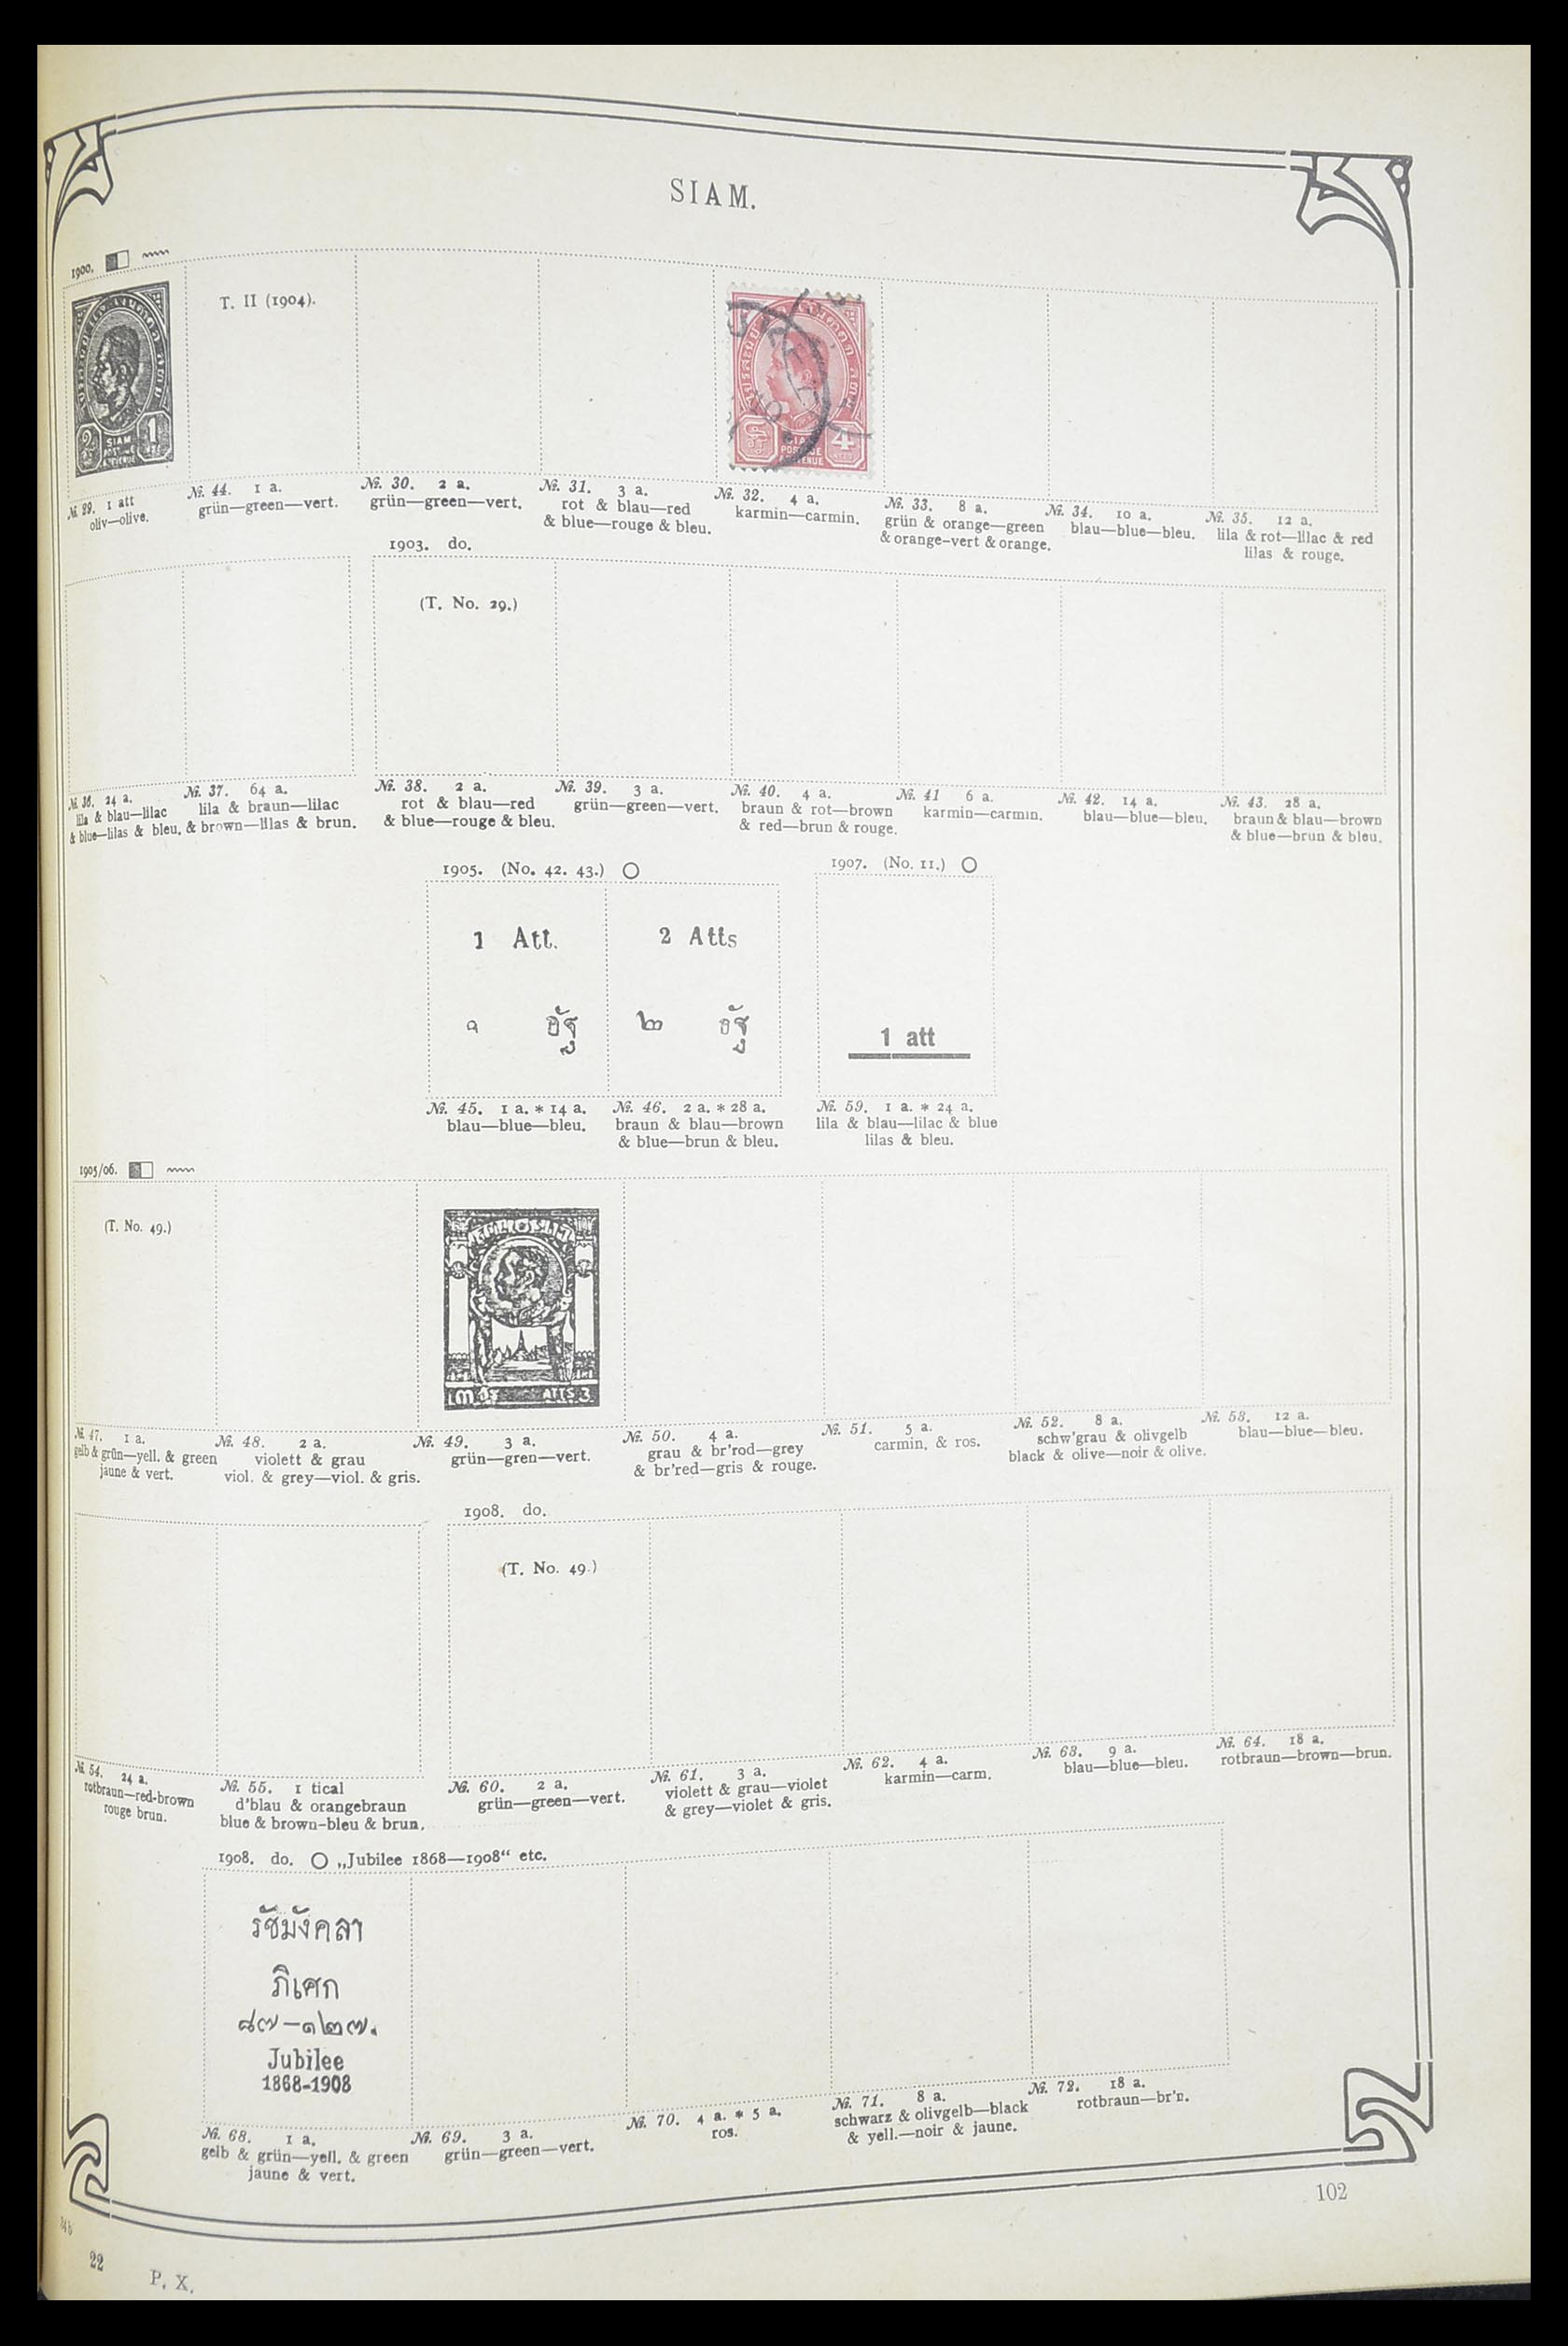 SIAM.
1900.
T. II (1904).
SIAM
1
SIAM
4
№. 29. 1 att
oliv—olive.
№. 44. 1 a.
grün—green—vert.
№. 30. 2 a.
grün—green—vert.
№. 31. 3 a.
rot & blau—red
& blue—rouge & bleu.
№. 32. 4 a.
karmin—carmin.
№. 33. 8 a.
grün & orange—green
& orange-vert & orange.
№. 34. 10 a.
blau—blue—bleu.
№. 35. 12 a.
lila & rot—lilac & red
lilas & rouge.
1903. do.
(T. No. 29.)
№. 36. 24 a.
lila & blau—lilac
& blue—lilas & bleu.
№. 37. 64 a.
lila & braun—lilac
& brown—lilas & brun.
№. 38. 2 a.
rot & blau—red
& blue—rouge & bleu.
№. 39. 3 a.
grün—green—vert.
№. 40. 4 a.
braun & rot—brown
& red—brun & rouge.
№. 41 6 a.
karmin—carmin.
№. 42. 14 a.
blau—blue—bleu.
№. 43. 28 a.
braun & blau—brown
& blue—brun & bleu.
1905. (No. 42. 43.)
1907. (No. 11.)
1 Att.
๑ อัฐ
2 Atts
๒ อัฐ
1 att
№. 45. 1 a. * 14 a.
blau—blue—bleu.
№. 46. 2 a. * 28 a.
braun & blau—brown
& blue—brun & bleu.
№. 59. 1 a. * 24 a.
lila & blau—lilac & blue
lilas & bleu.
1905/06.
(T. No. 49.)
ATTS 3.
№. 47. 1 a.
gelb & grün—yell. & green
jaune & vert.
№. 48. 2 a.
violett & grau
viol. & grey—viol. & gris.
№. 49. 3 a.
grün—gren—vert.
№. 50. 4 a.
grau & br'rod—grey
& br'red—gris & rouge.
№. 51. 5 a.
carmin, & ros.
№. 52. 8 a.
schw'grau & olivgelb
black & olive—noir & olive.
№. 53. 12 a.
blau—blue—bleu.
1908. do.
(T. No. 49.)
№. 54. 24 a.
rotbraun—red-brown
rouge brun.
№. 55. 1 tical
d'blau & orangebraun
blue & brown-bleu & brun.
№. 60. 2 a.
grün—green—vert.
№. 61. 3 a.
violett & grau—violet
& grey—violet & gris.
№. 62. 4 a.
karmin—carm.
№. 63. 9 a.
blau—blue—bleu.
№. 64. 18 a.
rotbraun—brown—brun.
1908. do. „Jubilee 1868—1908“ etc.
รัชมังคลา
ภิเศก
๘๗–๑๒๗.
Jubilee
1868-1908
№. 68. 1 a.
gelb & grün—yell. & green
jaune & vert.
№. 69. 3 a.
grün—green—vert.
№. 70. 4 a. * 5 a.
ros.
№. 71. 8 a.
schwarz & olivgelb—black
& yell.—noir & jaune.
№. 72. 18 a.
rotbraun—br'n.
102
22
P. X.